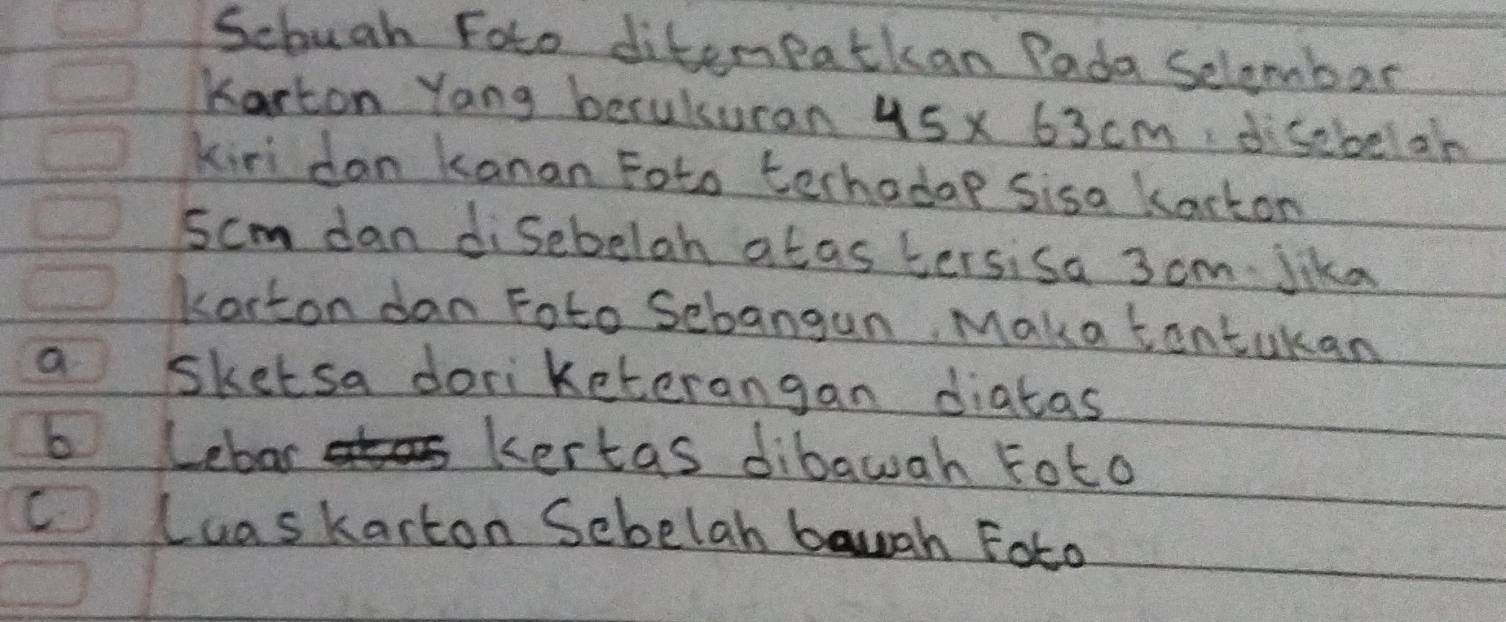 Sebuah Foto ditempatkan Pada Selembar
Karton Yang berukuran 45 x 63cm. disebelah
Kiri dan kanan Foto terhadap Sisa karton
5cm dan disebelah atas tersisa 3cm. Jika
karton dan Foto Sebangun. Maka tentukan
a. Sketsa dari Keterangan diatas
b Lebar kertas dibawah Foto
C. Luas karton Sebelah bawah Foto